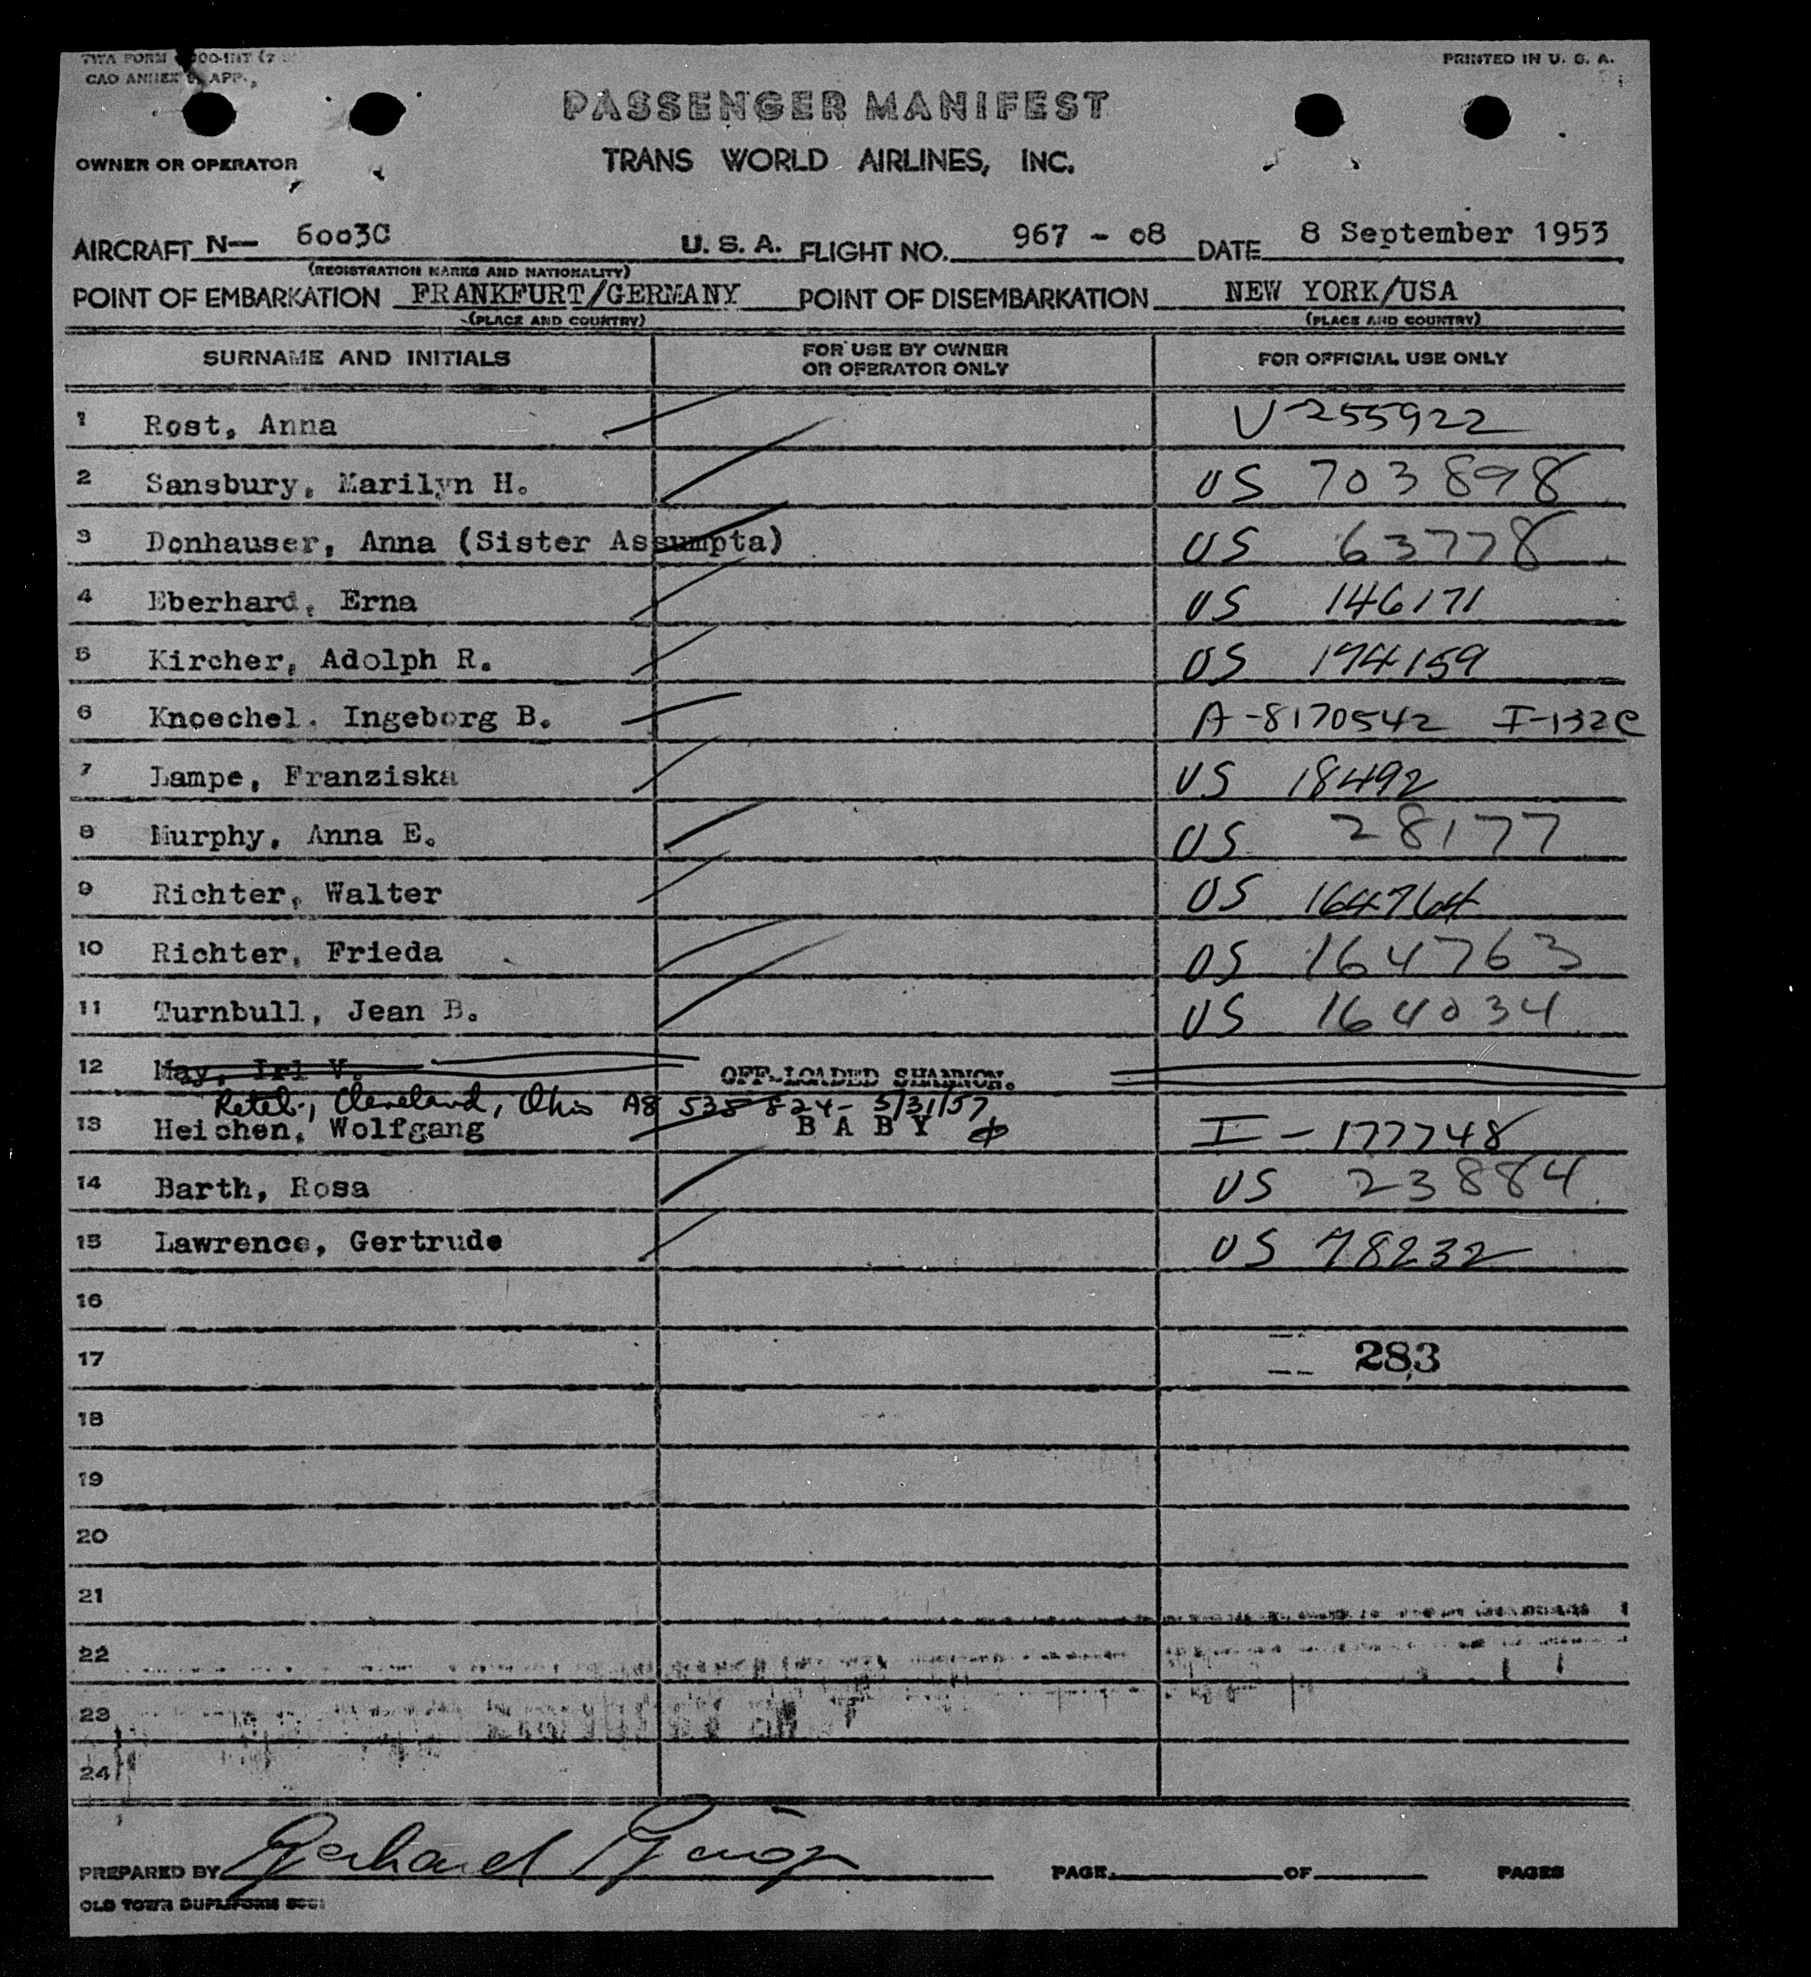 TWA FORM
CAO ANNEX 9, APP.,
PRINTED IN U. S. A.
PASSENGER MANIFEST
OWNER OR OPERATOR TRANS WORLD AIRLINES, INC.
AIRCRAFT N— 6003C U. S. A. FLIGHT NO. 967 - 08 DATE 8 September 1953
(REGISTRATION MARKS AND NATIONALITY)
POINT OF EMBARKATION FRANKFURT/GERMANY POINT OF DISEMBARKATION NEW YORK/USA
(PLACE AND COUNTRY) (PLACE AND COUNTRY)
SURNAME AND INITIALS FOR USE BY OWNER OR OPERATOR ONLY FOR OFFICIAL USE ONLY
1 Rost, Anna V-255922
2 Sansbury, Marilyn H. US 703898
3 Donhauser, Anna (Sister Assumpta) US 63778
4 Eberhard, Erna US 146171
5 Kircher, Adolph R. US 174159
6 Knoechel, Ingeborg B. A-8170542 I-132c
7 Lampe, Franziska US 18492
8 Murphy, Anna E. US 28177
9 Richter, Walter US 164764
10 Richter, Frieda US 164763
11 Turnbull, Jean B. US 164034
12 May, Irl V. OFF-LOADED SHANNON.
Cleveland, Ohio A8 538 824- 5/31/57
13 Heichen, Wolfgang B A B Y I-177748
14 Barth, Rosa US 23884
15 Lawrence, Gertrude US 78232
16
17 283
18
19
20
21
22
23
24
PREPARED BY Gerhard PAGE OF PAGES
OLD TOWN DUPLIFORM